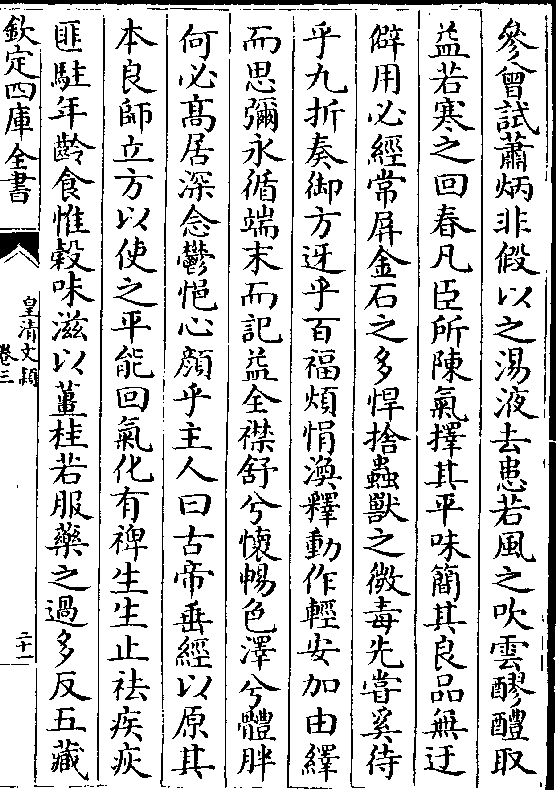 參曾試蕭炳非假以之湯液去患若風之吹雲醪醴取
益若寒之回春凡臣所陳氣擇其平味簡其良品無迂
僻用必經常屏金石之多悍捨蟲獸之微毒先嘗奚待
乎九折奏御方迓乎百福煩悁渙釋動作輕安加由繹
而思彌永循端末而記益全襟舒兮懷暢色澤兮體胖
何必高居深念鬱悒心顔乎主人曰古帝垂經以原其
本良師立方以使之平能回氣化有裨生生止祛疾疢
匪駐年齡食惟穀味滋以薑桂若服藥之過多反五藏
欽定四庫全書
皇清文穎
卷三
二十一